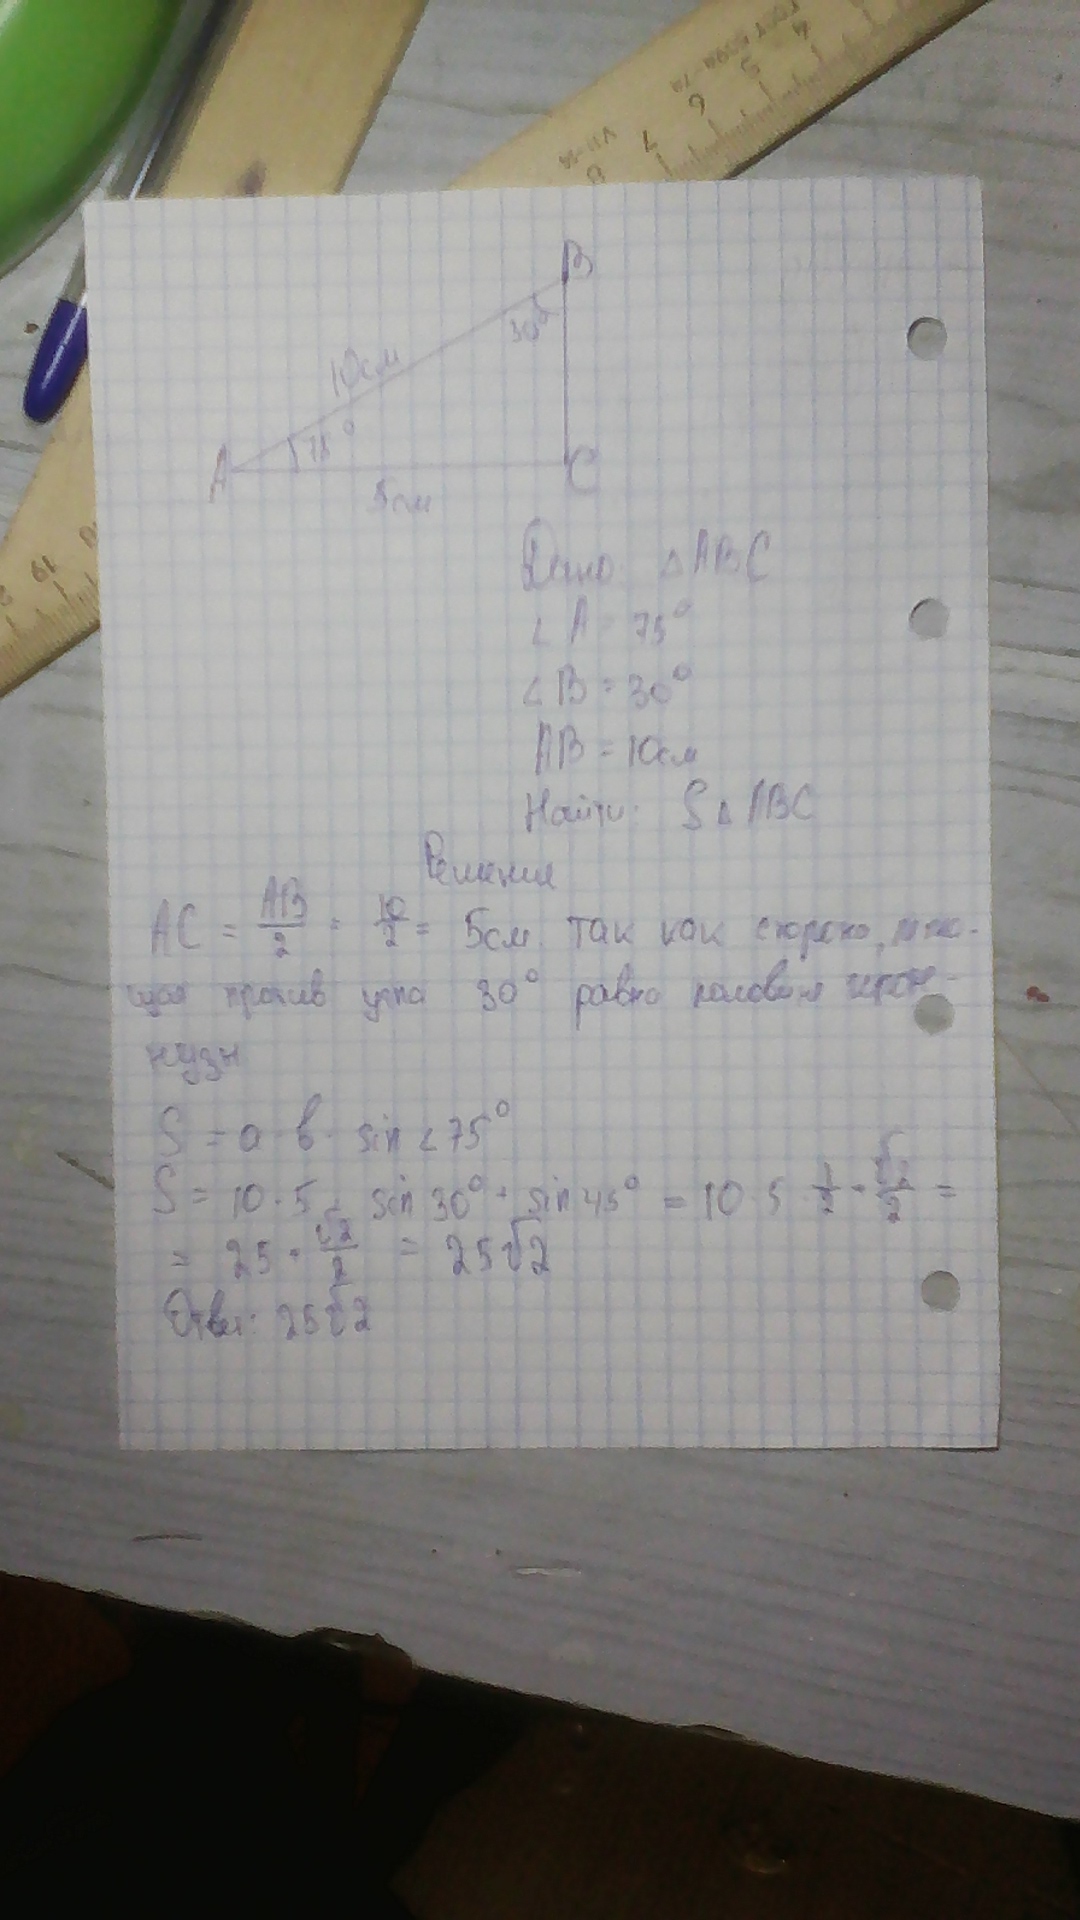 ГОСТ
4
5
6
7
8
VII-1А
19
2
B
30°
10см
75°
A
C
5см
Дано: △ABC
∠A = 75°
∠B = 30°
AB = 10см
Найти: S△ABC
Решение
AC = AB/2 = 10/2 = 5см так как сторона, лежа-
щая против угла 30° равна половине гипоте-
нузы
S = a · в · sin∠75°
S = 10 · 5 · sin30° · sin45° = 10 · 5 · 1/2 · √2/2 =
= 25 · √2/2 = 25√2
Ответ: 25√2